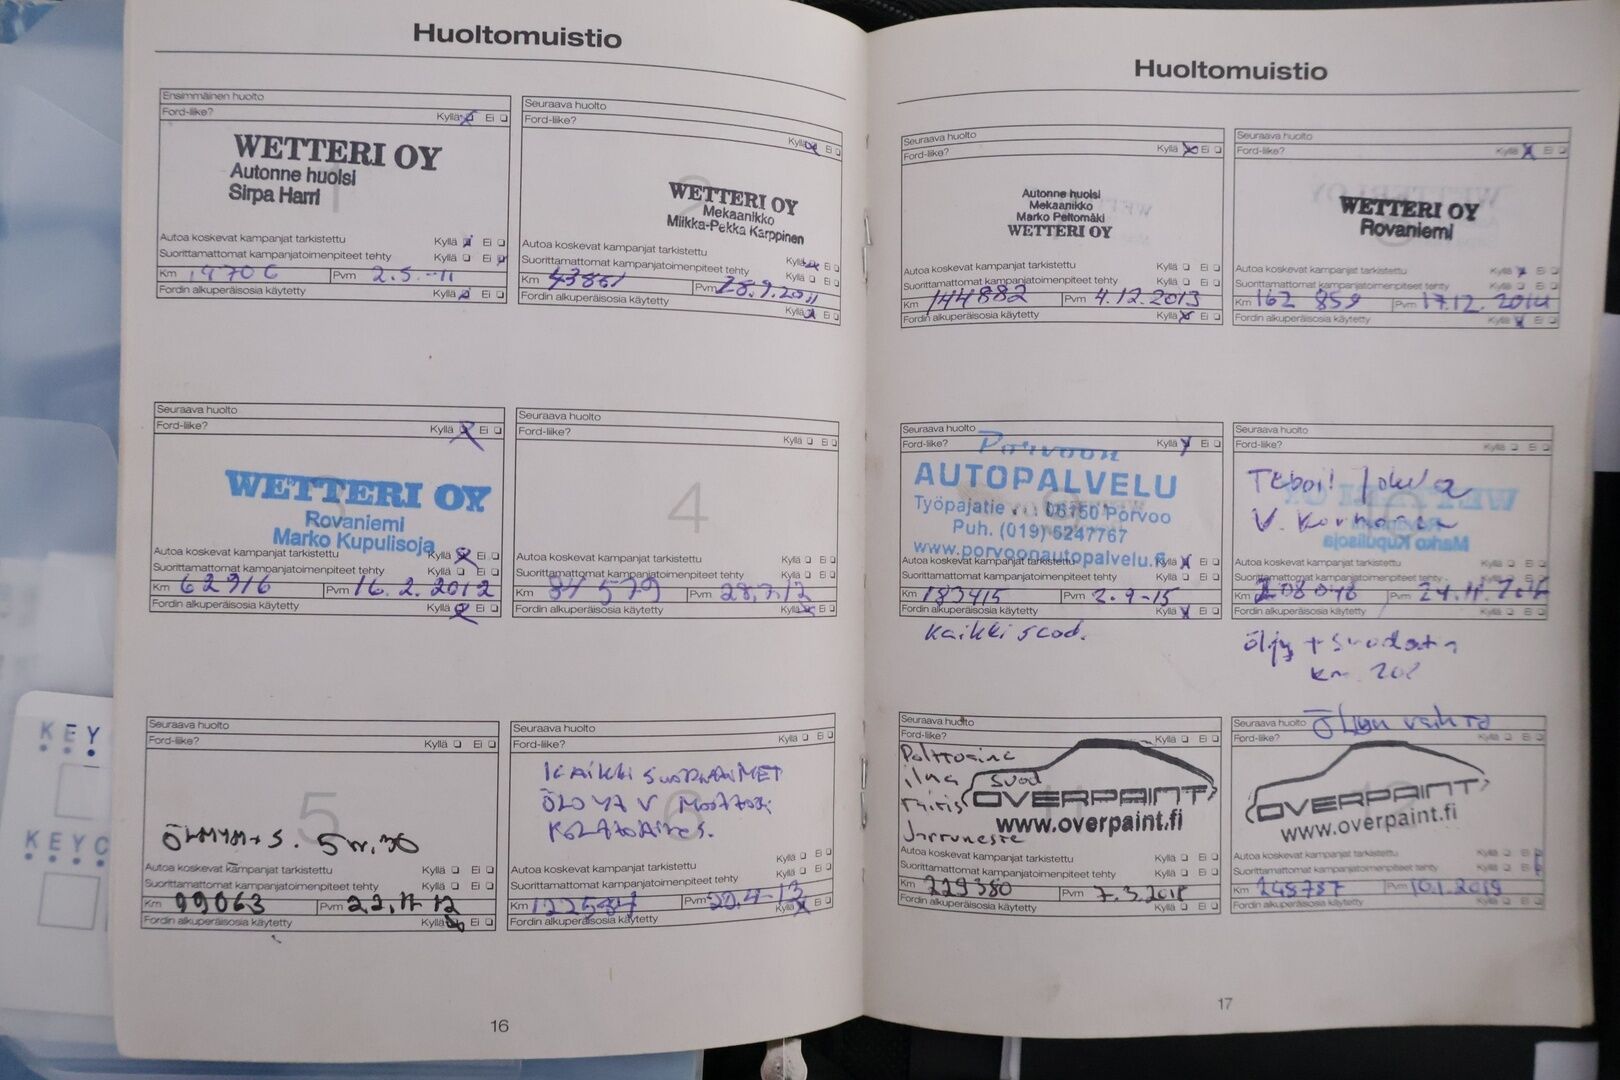 Huoltomuistio
Ensimmäinen huolto
Ford-liike? Kyllä Ei
WETTERI OY
Autonne huolsi
Sirpa Harri
1
Autoa koskevat kampanjat tarkistettu Kyllä Ei
Suorittamattomat kampanjatoimenpiteet tehty Kyllä Ei
Km Pvm 2.5.-11
Fordin alkuperäisosia käytetty Kyllä Ei
Seuraava huolto
Ford-liike? Kyllä Ei
WETTERI OY
Mekaanikko
Miikka-Pekka Karppinen
Autoa koskevat kampanjat tarkistettu Kyllä Ei
Suorittamattomat kampanjatoimenpiteet tehty Kyllä Ei
Km 43861 Pvm 28.9.2011
Fordin alkuperäisosia käytetty Kyllä Ei
Seuraava huolto
Ford-liike? Kyllä Ei
WETTERI OY
Rovaniemi
Marko Kupulisoja
Autoa koskevat kampanjat tarkistettu Kyllä Ei
Suorittamattomat kampanjatoimenpiteet tehty Kyllä Ei
Km 62916 Pvm 16.2.2012
Fordin alkuperäisosia käytetty Kyllä Ei
Seuraava huolto
Ford-liike? Kyllä Ei
4
Autoa koskevat kampanjat tarkistettu Kyllä Ei
Suorittamattomat kampanjatoimenpiteet tehty Kyllä Ei
Km 84579 Pvm 28.7.12
Fordin alkuperäisosia käytetty Kyllä Ei
Seuraava huolto
Ford-liike? Kyllä Ei
5
5w.30
Autoa koskevat kampanjat tarkistettu Kyllä Ei
Suorittamattomat kampanjatoimenpiteet tehty Kyllä Ei
Km 99063 Pvm 22.11 12
Fordin alkuperäisosia käytetty Kyllä Ei
Seuraava huolto
Ford-liike? Kyllä Ei
6
KAIKKI
Autoa koskevat kampanjat tarkistettu Kyllä Ei
Suorittamattomat kampanjatoimenpiteet tehty Kyllä Ei
Km Pvm 20.4-13
Fordin alkuperäisosia käytetty Kyllä Ei
16
Huoltomuistio
Seuraava huolto
Ford-liike? Kyllä Ei
Autonne huolsi
Mekaanikko
Marko Peltomäki
WETTERI OY
Autoa koskevat kampanjat tarkistettu Kyllä Ei
Suorittamattomat kampanjatoimenpiteet tehty Kyllä Ei
Km 144882 Pvm 4.12.2013
Fordin alkuperäisosia käytetty Kyllä Ei
Seuraava huolto
Ford-liike? Kyllä Ei
WETTERI OY
Rovaniemi
Autoa koskevat kampanjat tarkistettu Kyllä Ei
Suorittamattomat kampanjatoimenpiteet tehty Kyllä Ei
Km 162 859 Pvm 17.12.2014
Fordin alkuperäisosia käytetty Kyllä Ei
Seuraava huolto
Ford-liike? Kyllä Ei
Porvoon
AUTOPALVELU
Työpajatie 06150 Porvoo
Puh. (019) 5247767
www.porvoonautopalvelu.fi
Autoa koskevat kampanjat tarkistettu Kyllä Ei
Suorittamattomat kampanjatoimenpiteet tehty Kyllä Ei
Km 183415 Pvm 2.9-15
Fordin alkuperäisosia käytetty Kyllä Ei
Kaikki suod.
Seuraava huolto
Ford-liike? Kyllä Ei
Teboil
Autoa koskevat kampanjat tarkistettu
Suorittamattomat kampanjatoimenpiteet tehty
Km 208048 Pvm
Fordin alkuperäisosia käytetty Kyllä Ei
öljy + suodatin
km 208
Seuraava huolto
Ford-liike? Kyllä Ei
ilma suod
OVERPAINT
www.overpaint.fi
Jarruneste
Autoa koskevat kampanjat tarkistettu Kyllä Ei
Suorittamattomat kampanjatoimenpiteet tehty Kyllä Ei
Km 229380 Pvm 7.3.2018
Fordin alkuperäisosia käytetty Kyllä Ei
Seuraava huolto Öljyn vaihto
Ford-liike? Kyllä Ei
OVERPAINT
www.overpaint.fi
Autoa koskevat kampanjat tarkistettu Kyllä Ei
Suorittamattomat kampanjatoimenpiteet tehty Kyllä Ei
Km 248787 Pvm 10.1.2019
Fordin alkuperäisosia käytetty Kyllä Ei
17
KEY
KEYC